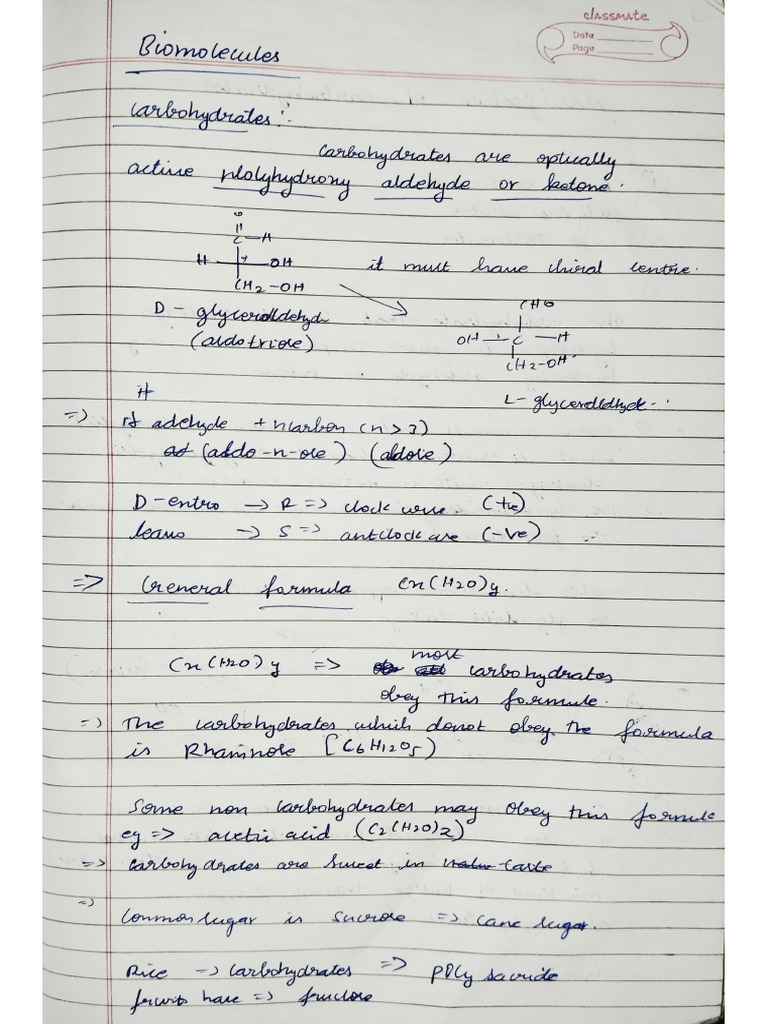 classmate
Date
Page
Biomolecules
Carbohydrates :
Carbohydrates are optically
active plolyhydroxy aldehyde or ketone.
O
||
C—H
H —OH it must have chiral centre.
CH2-OH
CHO
D- glyceraldehyde
OH — C —H
(aldotriose)
CH2-OH
H
L-glyceraldehyde..
=> If adehyde + ncarbon (n>3)
(aldo-n-ose) (aldose)
D-entro → R => clock wise (+ve)
leavo → S => anticlock are (-ve)
=> General formula Cx(H2O)y.
Cx(H2O)y => most carbohydrates
obey this formule.
=> The carbohydrates which donot obey the formula
is Rhaminose [C6H12O5)
Some non carbohydrates may obey this formule
eg => acetic acid (C2(H2O)2)
=> Carbohydrates are sweet in taste
=>
Common sugar is sucrose => cane sugar.
Rice → carbohydrates => poly saccride
fruits have => fructose